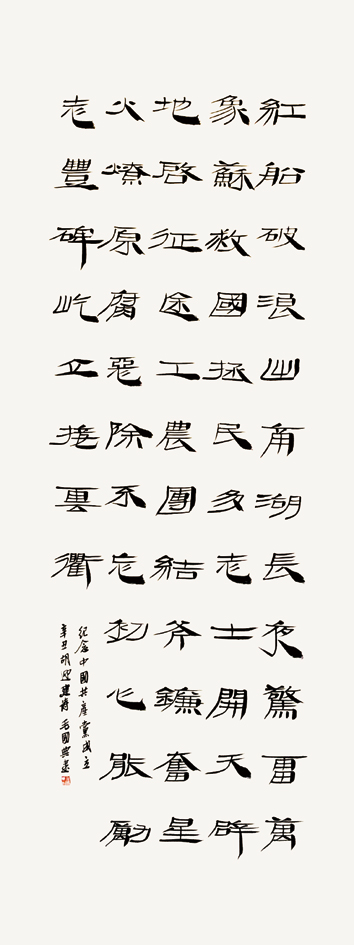 紅船破浪出南湖長夜驚雷萬
象蘇救國拯民多志士開天辟
地啓征途工農團結斧鐮奮星
火燎原腐惡除不忘初心能勵
志豐碑屹立接雲衢
紀念中國共產黨成立
辛丑胡迎建詩 毛國典書